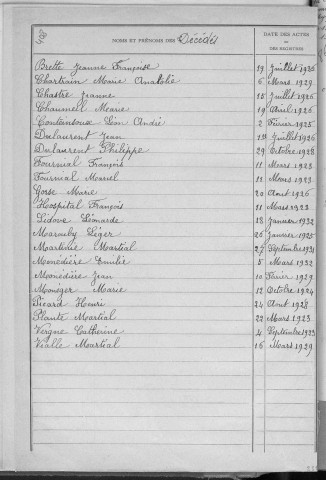 NOMS ET PRÉNOMS DES Décédés
DATE DES ACTES
ou
DES REGISTRES
Brette Jeanne Françoise 19 Juillet 1926
Chartrain Marie Anatolie 6 Mars 1929
Chastre Jeanne 15 Juillet 1926
Chaumeil Marie 19 Avril 1926
Contensoux Léon André 2 Février 1925
Dulaurent Jean 1er Juillet 1926
Dulaurent Philippe 29 Octobre 1928
Fournial François 11 Mars 1923
Fournial Marcel 11 Mars 1929
Gorse Marie 20 Août 1926
Hospital François 11 Mars 1928
Lidove Léonarde 18 Janvier 1932
Marouby Léger 26 Janvier 1925
Martinie Martial 27 Septembre 1931
Monédière Emilie 5 Mars 1932
Monédière Jean 10 Février 1929
Monéger Marie 12 Octobre 1924
Picard Henri 24 Août 1928
Plante Martial 22 Mars 1923
Vergne Catherine 4 Septembre 1923
Vialle Martial 16 Mars 1929